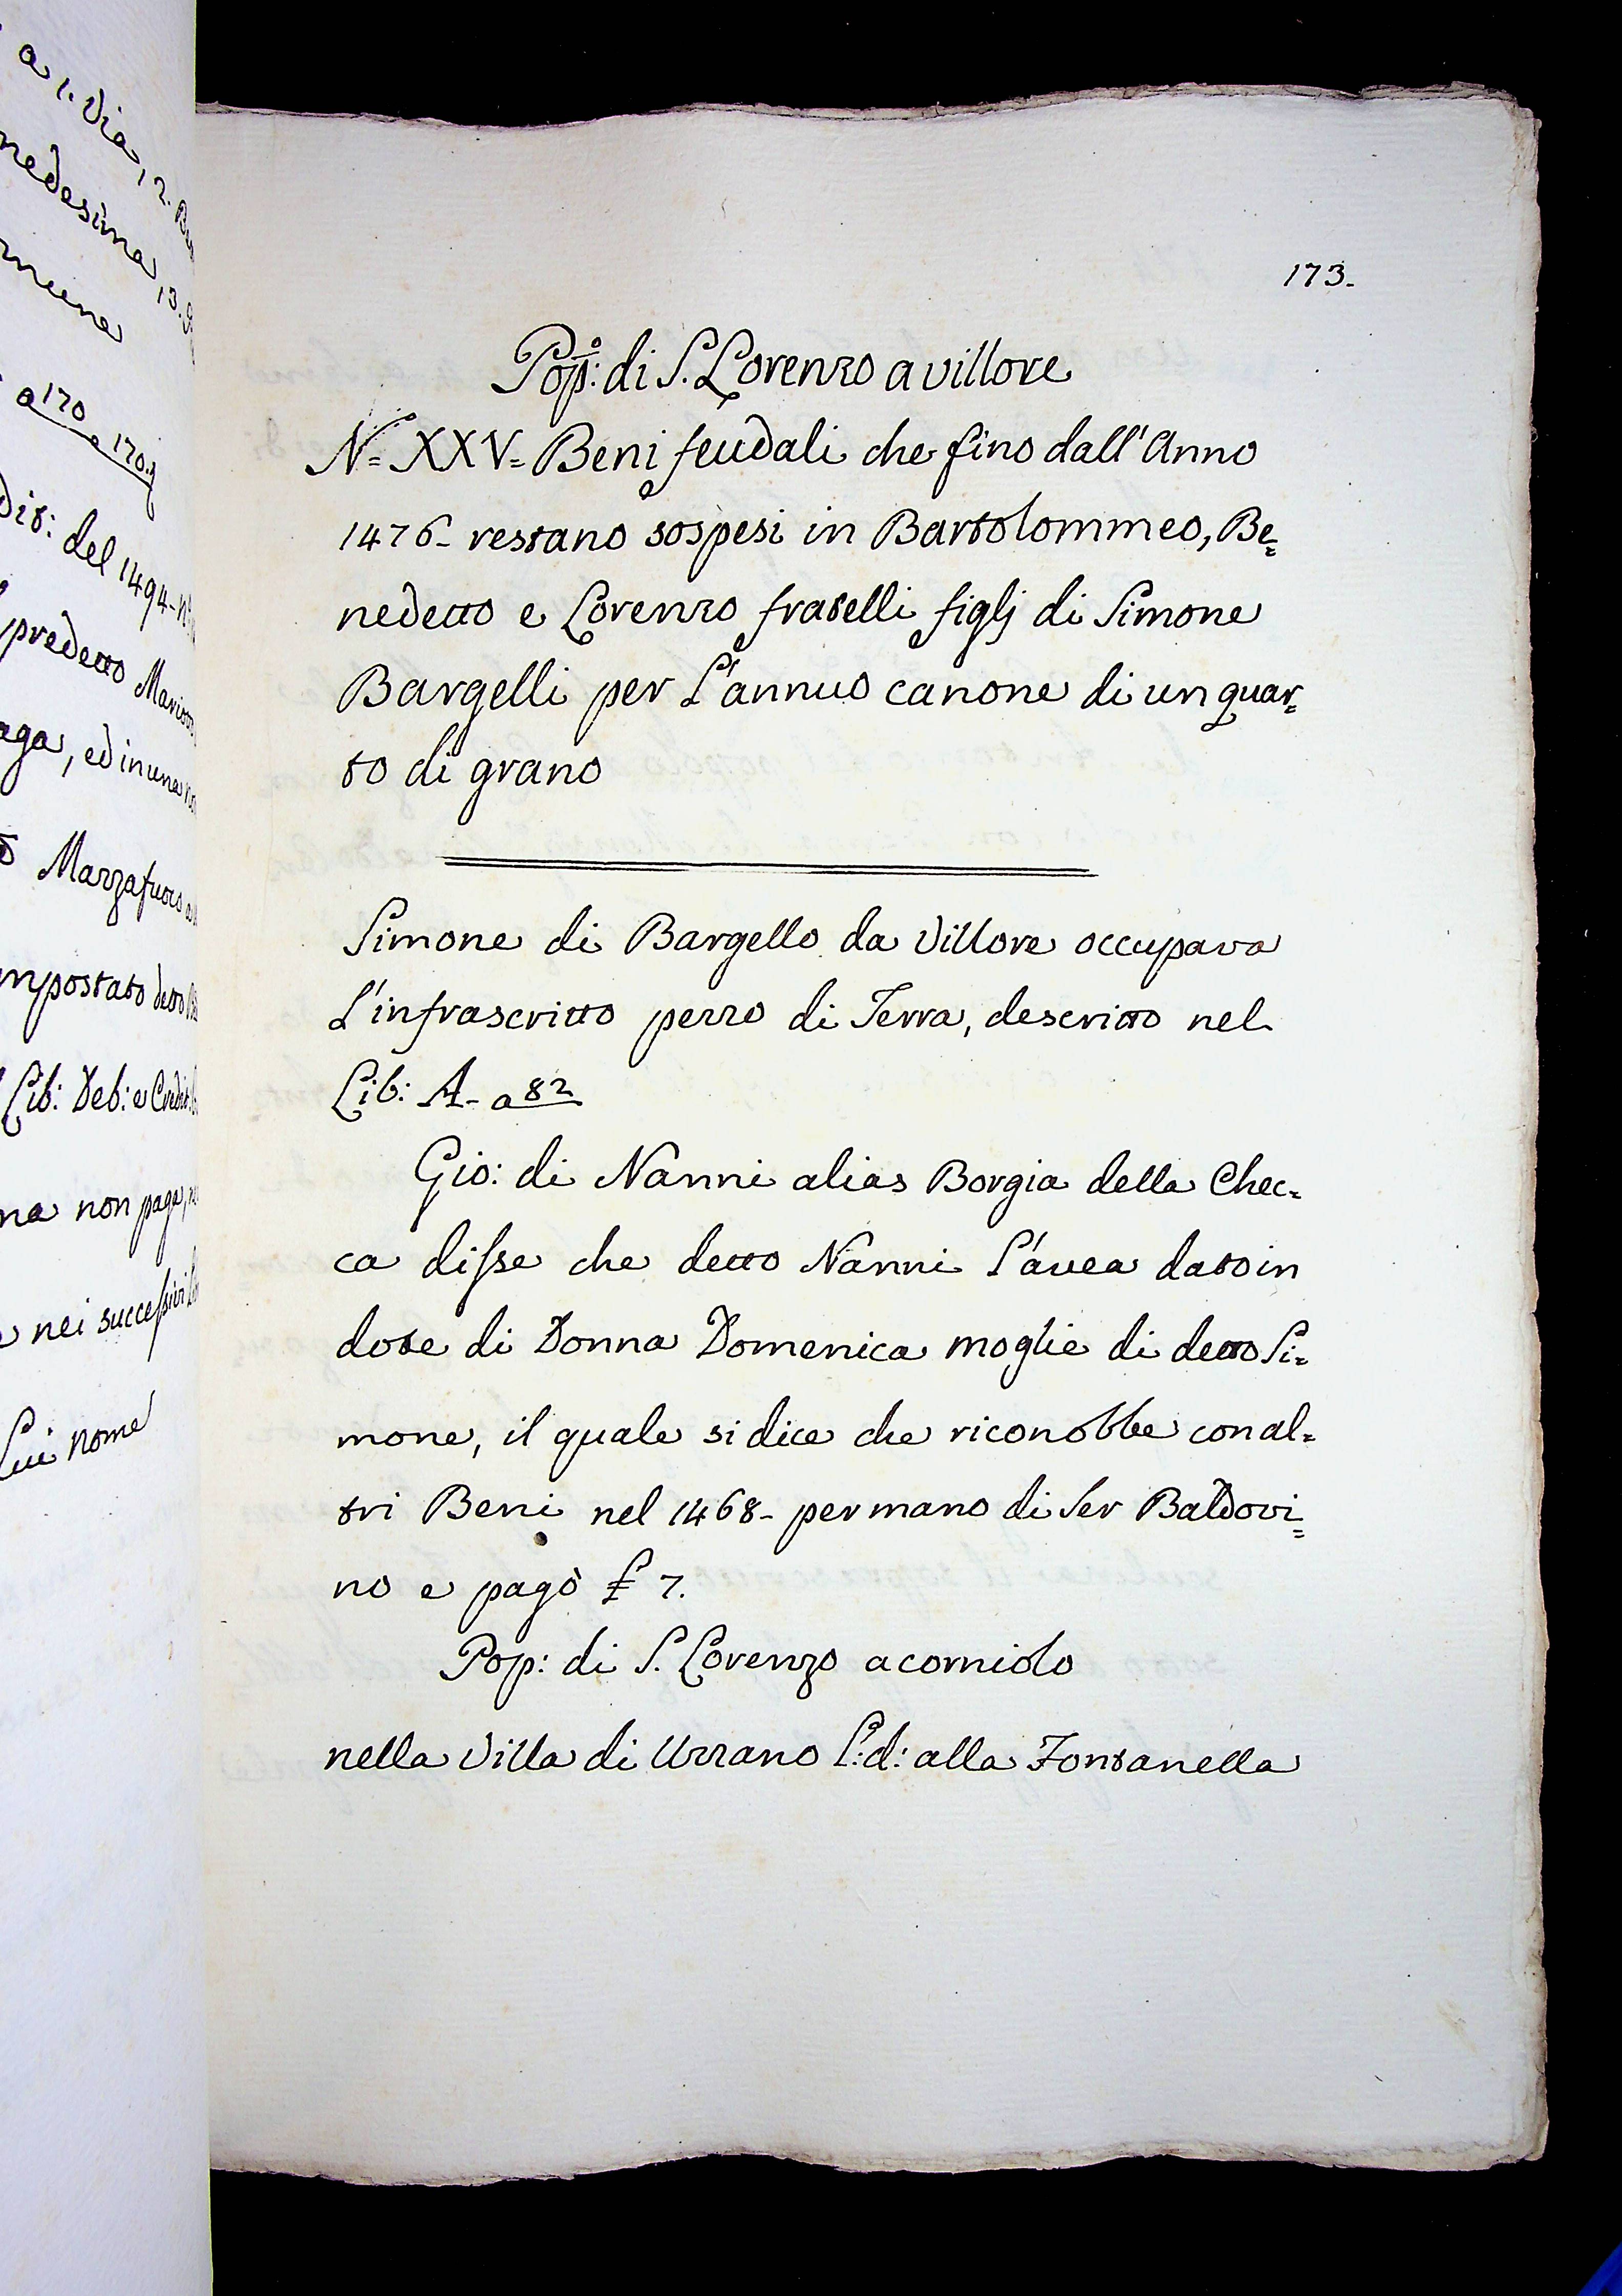 a 1. Via, 2.
medesima, 3.
a 170
a 170.
del 1494-
predetto
aga, ed in una
Mazzafuoco
impostato detto
Lib: Deb: e Credit.
na non paga,
nei successivi
Lui nome
173.
Popº: di S. Lorenzo a villore
N= XXV= Beni feudali che fino dall' Anno
1476- restano sospesi in Bartolommeo, Be=
nedetto e Lorenzo fratelli figlj di Simone
Bargelli per L'annuo canone di un quar=
to di grano
Simone di Bargello da Villore occupava
L'infrascritto pezzo di Terra, descritto nel
Lib: A- a 82
Gio: di Nanni alias Borgia della Chec=
ca disse che detto Nanni l'avea dato in
dote di Donna Domenica moglie di detto Si=
mone, il quale si dice che riconobbe con al=
tri Beni nel 1468- per mano di Ser Baldovi=
no e pagò £ 7.
Pop: di S. Lorenzo a corniolo
nella Villa di Uzzano L: d: alla Fontanella